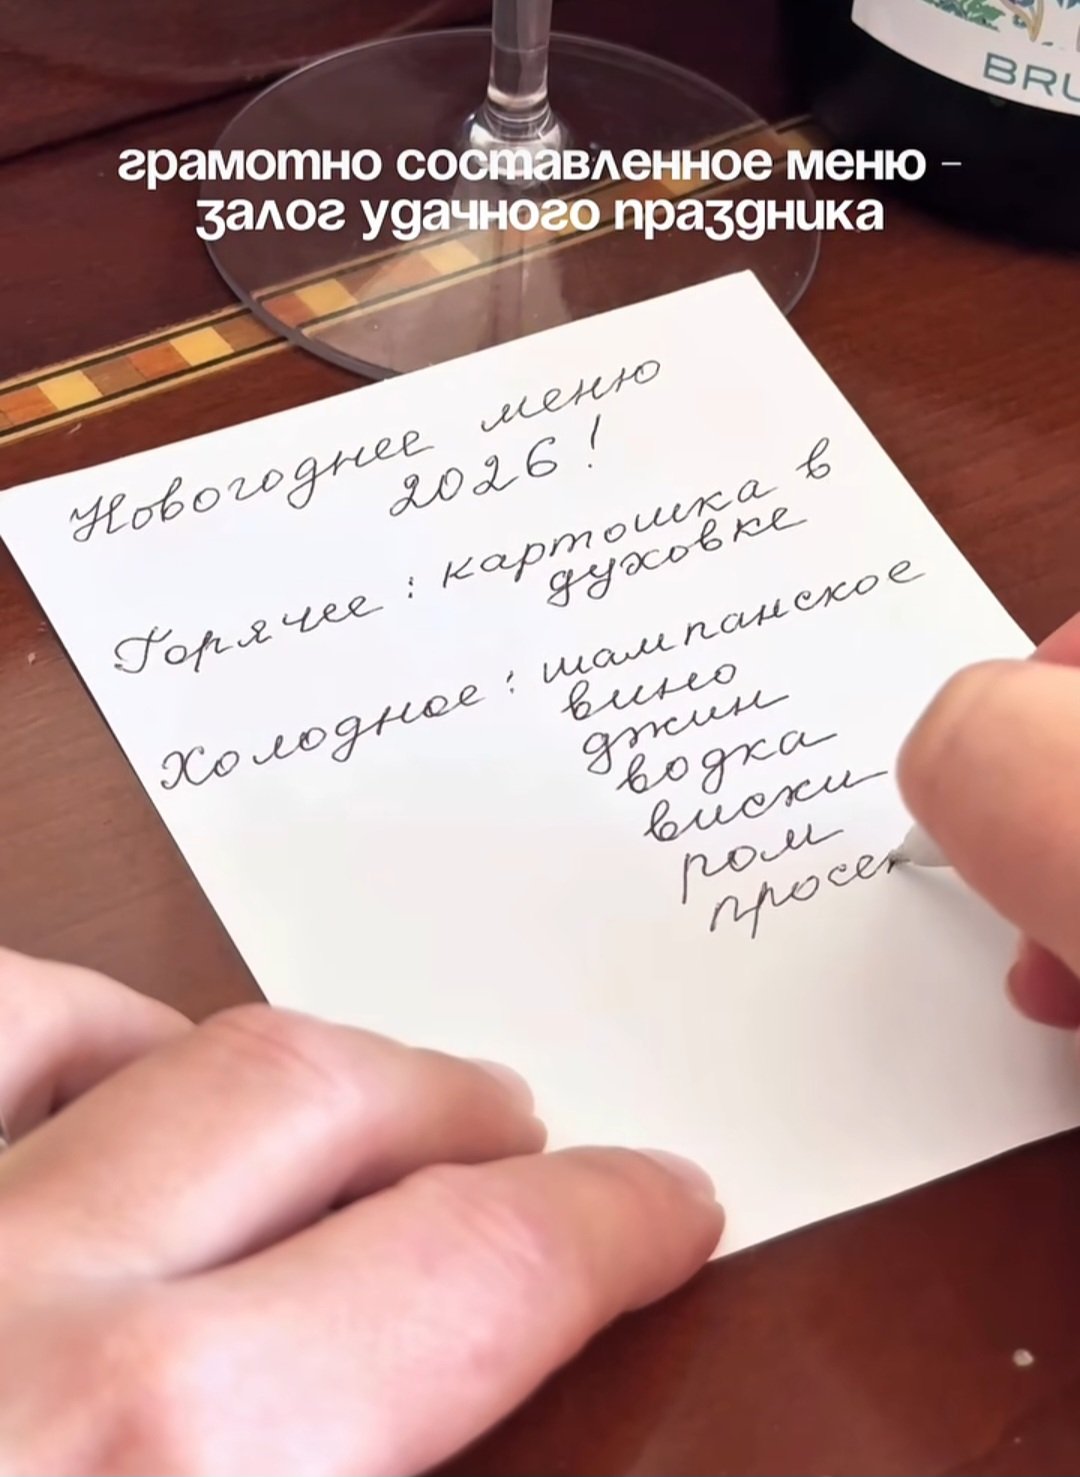 грамотно составленное меню –
залог удачного праздника
BRU
Новогоднее меню
2026!
Горячее: картошка в
духовке
Холодное: шампанское
вино
джин
водка
виски
ром
просек